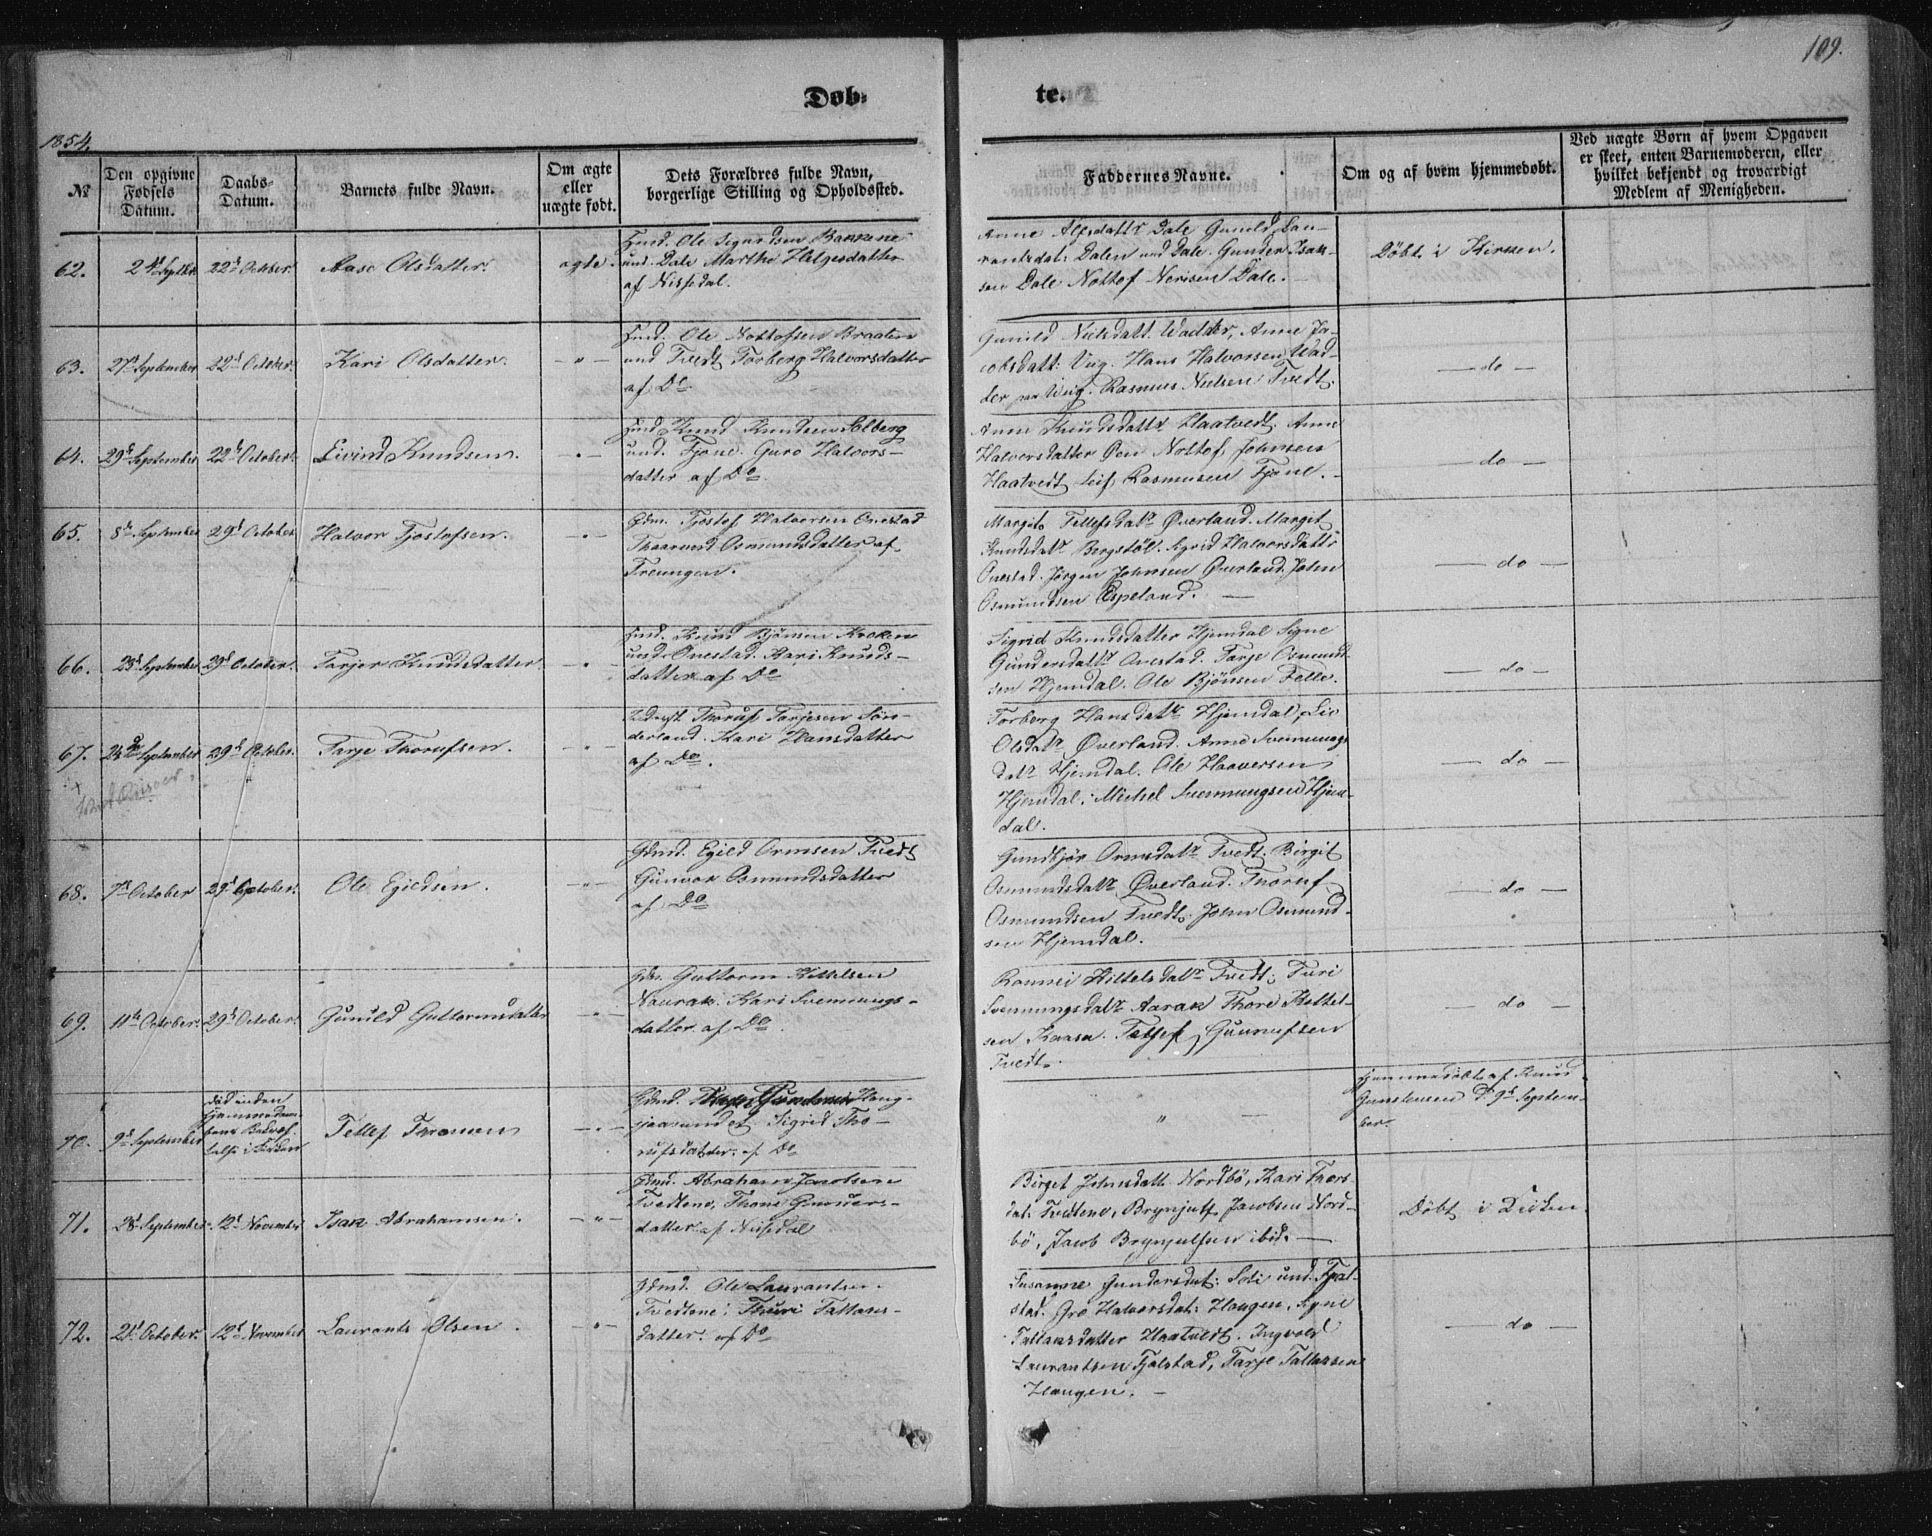 109.
Døb=
te.
1854.
№
Den opgivne
Fødsels
Datum.
Daabs-
Datum.
Barnets fulde Navn.
Om ægte
eller
uægte født.
Dets Forældres fulde Navn,
borgerlige Stilling og Opholdssted.
Faddernes Navne.
Om og af hvem hjemmedøbt.
Ved uægte Børn af hvem Opgaven
er skeet, enten Barnemoderen, eller
hvilket bekjendt og troværdigt
Medlem af Menigheden.
62.
22d October.
Aase Olsdatter.
ægte
Hmd. Ole Sigurdsen Bakkene
und. Dale Marthe Helgesdatter
af Nissedal.
Anne Alfsdattr Dale Gunild Lau-
rantsdat: Dalen und Dale. Gunder Isak-
sen Dale Nottof Nerisen Dale.
Døbt i Kirken.
63.
27d September
22d October.
Kari Olsdatter.
— " —
Hmd. Ole Nottofsen Braaten
und Tvedt Torberg Halvorsdatter
af Do
Gunild Nielsdatt. Wadder, Anne Ja-
cobsdatt: Vig. Hans Halvorsen Wad-
der Rasmus Nielsen Tvedt.
— do —
64.
29d September
22d October.
Eivind Knudsen.
— " —
Hmd. Knud Knudsen Solberg
und. Fjone. Guro Halvors-
datter af Do
Anne Knudsdattr Haatvedt. Anne
Halvorsdatter Øen Nottof Johnsen
Haatvedt Leif Rasmusen Fjone.
— do —
65.
8de September
29d October
Halvor Tjostofsen.
— " —
Gdm. Tjostof Halvorsen Onestad
Osmundsdatter af
Treungen.
Margit Tellefsdatr Øverland. Margit
Knudsdatr Bergstøl. Sigrid Halvorsdattr
Onestad. Jørgen Johnsen Øverland. John
Osmundsen Espeland.
— do —
66.
29d October.
Tarjer Knudsdatter.
— " —
Hmd. Knud Bjønsen Kroken
und. Onestad. Kari Knuds-
datter af Do
Sigrid Knudsdatter Hjemdal Signe
Gundersdattr Onestad. Tarje Osmund-
sen Hjemdal. Ole Bjønsen Felle.
— do —
67.
29d October.
Tarje Thorufsen.
— " —
Thoruf Tarjesen Søn-
derland. Kari Hansdatter
af Do.
Torberg Hansdatr Hjemdal, Liv
Olsdatr Øverland. Anne Svennungs
datr Hjemdal. Ole Haaversen
Hjemdal. Michel Svennungsen Hjem-
dal.
— do —
68.
7d October
29d October.
Ole Egildsen.
— " —
Gdmd. Egild Ormsen Tvedt
Gunvor Osmundsdatter
af Do
Gundbjør Ormsdatr Tvedt. Birgit
Osmundsdatr Øverland. Thoruf
Osmundsen Tvedt. John Osmund-
sen Hjemdal.
— do —
69.
11te October.
29d October.
Gunild Guttormsdatter
— " —
Gdm. Guttorm Kittelsen
Naurak. Kari Svennungs-
datter af Do
Ronnei Kittelsdatr Tvedt. Turi
Svennungsdatr Aarak Thore Kittel-
sen Kaasa. Tellef Gunnufsen
Tvedt.
— do —
70.
9d September
død inden
Hjemmedaa-
bens Bekræf-
telse i Kirken
Tellef
— " —
Gdmd. Haug-
et Sigrid Tho-
rufsdatter. af Do
"
Hjemmedøbt af Knud
Gunstensen d. 9d Septem-
ber.
71.
28d September
12d November
Isak Abrahamsen.
— " —
Gdmd. Abraham Jacobsen
Tvedtene, Thone Gunders-
datter af Nissedal
Birget Johnsdatt. Nordbø, Kari Thors
dat: Tvedtene, Brynjulf Jacobsen Nord-
bø, Jacob Brynjulfsen ibid.
Døbt i Kirken.
72.
21d October.
12d November
Laurants Olsen.
— " —
Gdmd. Ole Laurantsen
Tvedtene. Thuri Tallaks-
datter. af Do
Susanne Gundersdat: Soli und. Fjal-
stad. Gro Halvorsdat: Haugen, Signe
Tallaksdatter Haatvedt. Ingvold
Laurantsen Fjalstad, Tarje Tallaksen
Haugen.
— do —